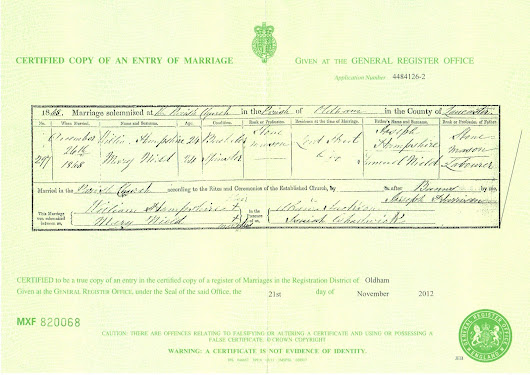 CERTIFIED COPY OF AN ENTRY OF MARRIAGE
GIVEN AT THE GENERAL REGISTER OFFICE
Application Number 4484126-2
1868. Marriage solemnised at the Parish Church in the Parish of Oldham in the County of Lancaster
No. When Married. Name and Surname. Age. Condition. Rank or Profession. Residence at the time of Marriage. Father's Name and Surname. Rank or Profession of Father.
247 26th 1868
William Hampshire 24 Bachelor Stone mason Joseph Hampshire Stone mason
Mary Nield 24 Spinster Samuel Nield Labourer
Married in the Parish Church according to the Rites and Ceremonies of the Established Church, by or after Banns by me,
This Marriage was solemnized between us,
William Hampshire
Mary Nield
in the Presence of us,
CERTIFIED to be a true copy of an entry in the certified copy of a register of Marriages in the Registration District of Oldham
Given at the GENERAL REGISTER OFFICE, under the Seal of the said Office, the 21st day of November 2012
MXF 820068
CAUTION: THERE ARE OFFENCES RELATING TO FALSIFYING OR ALTERING A CERTIFICATE AND USING OR POSSESSING A
FALSE CERTIFICATE. © CROWN COPYRIGHT
WARNING: A CERTIFICATE IS NOT EVIDENCE OF IDENTITY.
GENERAL REGISTER OFFICE
ENGLAND